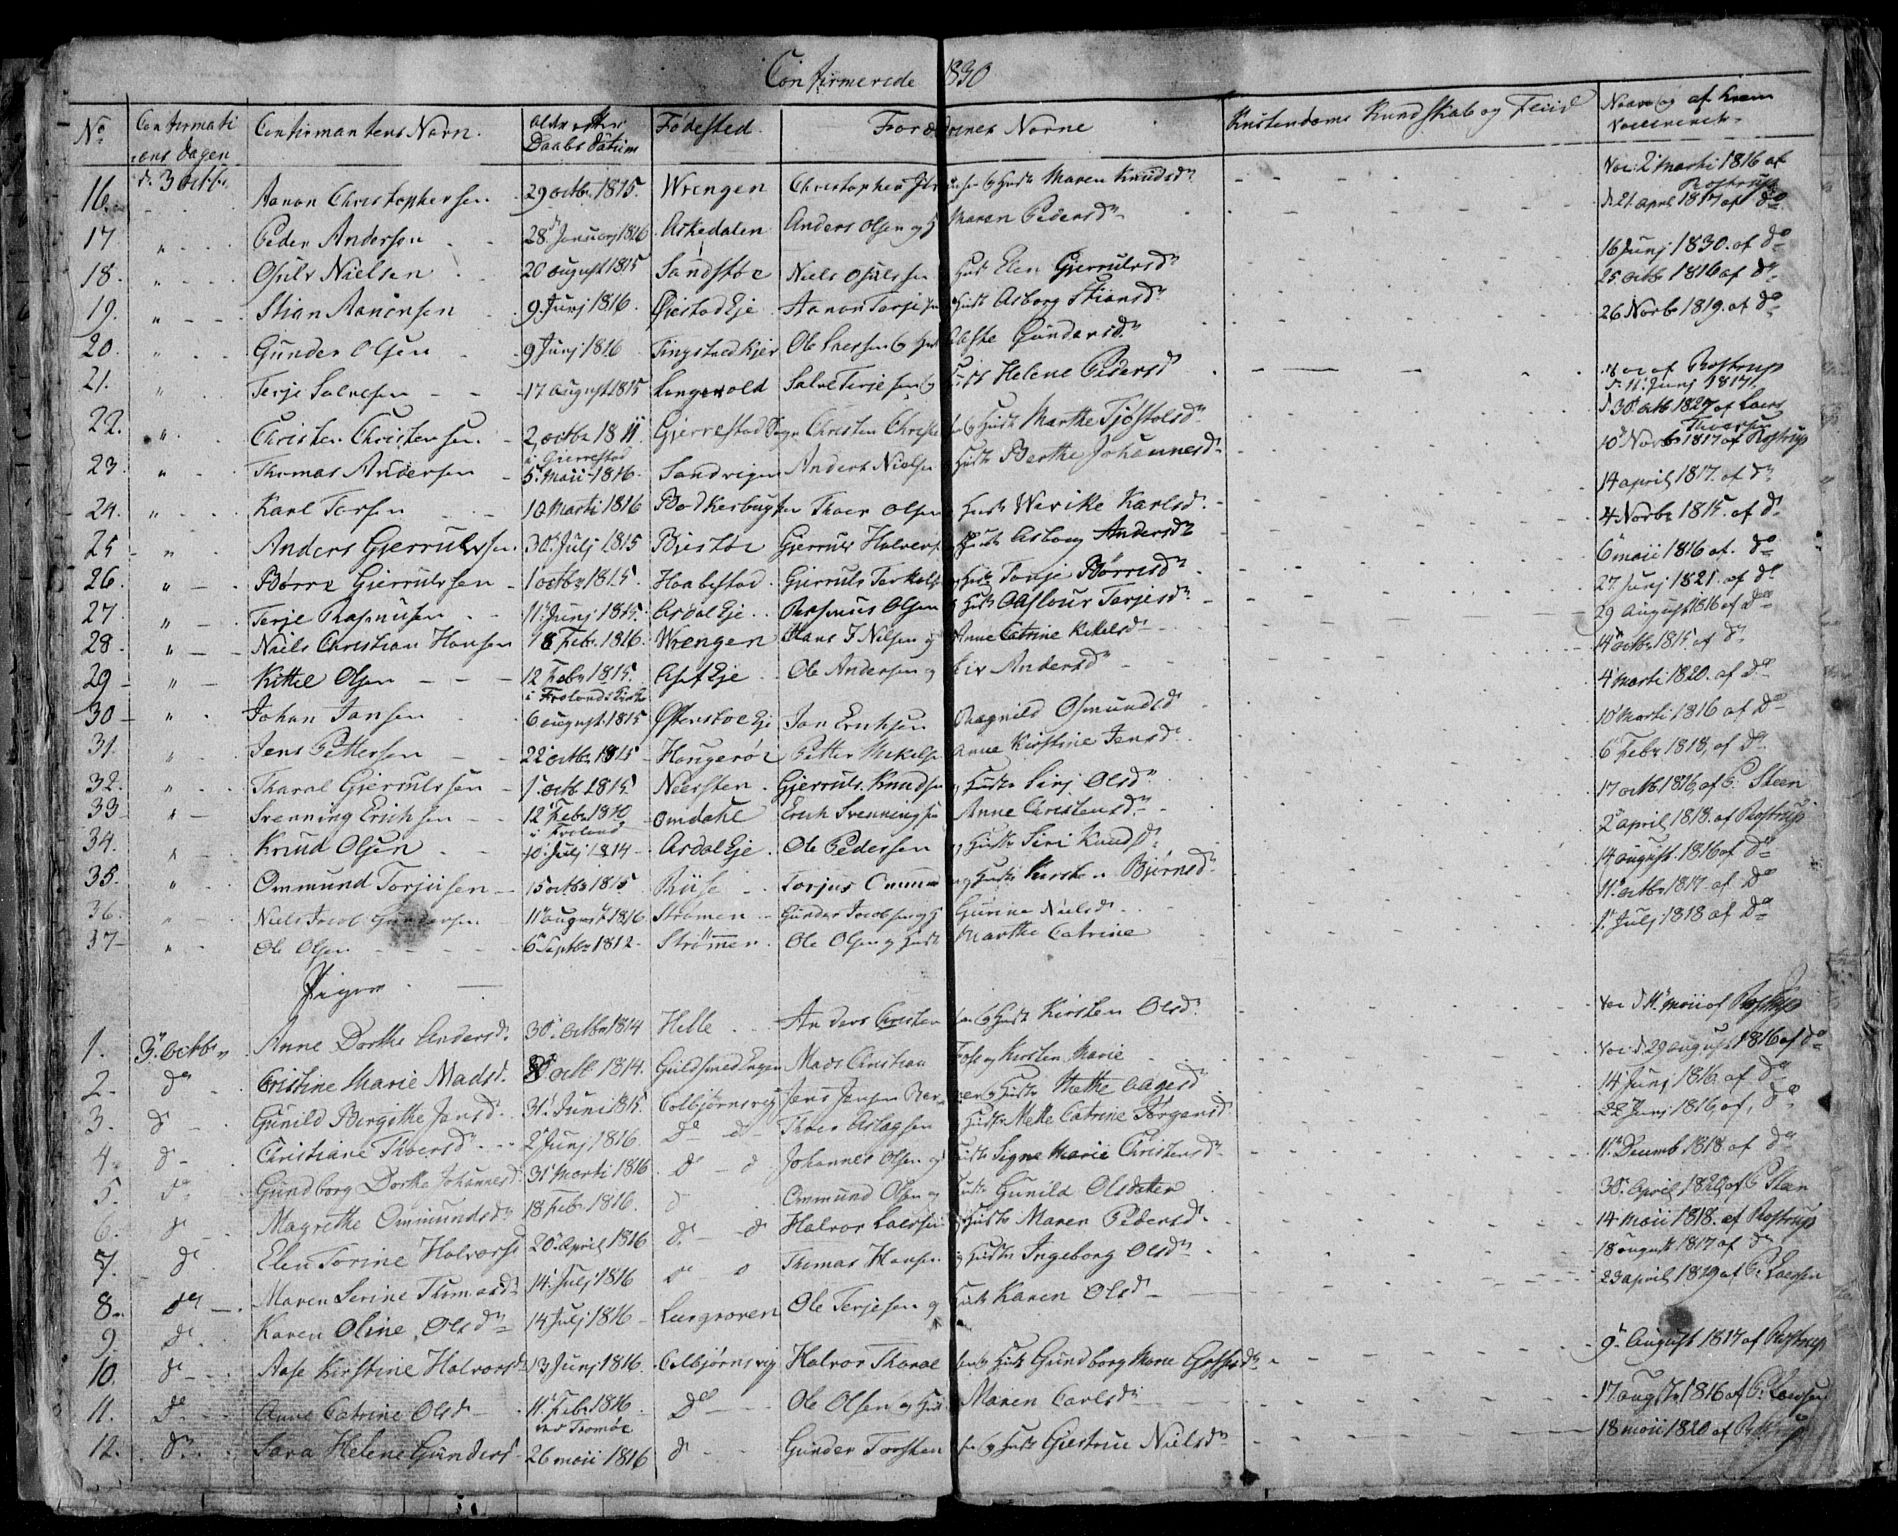 Confirmerede 1830
No Confirmations dagen Confirmantens Navn. Alder efter Daabs Datum Fødested. Forældrenes Navne Kristendoms Kundskab og Fliid Naar og af hvem Vaccineret
16. d. 3 octbr Aanon Christophersen 29 octbr 1815. Wrengen Christopher og Hust Maren Knudsd. Vac: 2 Marti 1816 af Rostrup
17 " Peder Andersen 28 Januarj 1816 Askedalen Anders Olsen og Maren Pedersd. d. 21 april 1817 af do
18. " Osuld Nielsen 20 august 1815 Sandstøe Niels Osulsen Hust Elen Gjerrulsd. 16 Junj 1830. af do
19. " Stian Aanonsen 9 Junj 1816. Eje Aanon Torjesen Hust Asborg Stiansd. 25 octb 1816 af do
20. " Gunder Olsen 9 Junj 1816 Tingstvedkjer Ole Larsen og Hust Aleste Gundersd. 26 Novbr 1819. af do
21. " Terje Salvesen 17 august 1815 Langevold Salve Terjesen og Hust Helene Pedersd. Vac af Rostrup d. 11 Junj 1817.
22. " Christen Christensen. 2 octbr 1811 i Gjerrestad Gjerrestad Sogn Christen Christensen og Hust Marthe Tjøstolsd. d. 30 octb 1827 af Lars
23. " Thomas Andersen 5 Maii 1816. Sandvigen Anders Nielsen Hust Berthe Johannesd. 10 Novbr 1817 af Rostrup
24. " Karl Torsen 10 Marti 1816 Thoer Olsen Hust Wevike Karlsd. 14 april 1817. af do
25 " Anders Gjerrulsen 30 Julj 1815 Bjestøe Gjerruls Halvorsen Hust Asborg Andersd. 4 Novbr 1815. af do
26. " Børre Gjerrulsen 1 octbr 1815 Haabestad. Gjerruls Terkelsen Hust Tonje Børresd. 6 maii 1816 af. do
27. " Terje Rasmusen 11 Junj 1815. Asdal Eje Rasmus Olsen Hust Aslour Terjesd. 27 Junj 1821. af do
28. " Niels Christian Hansen 18 Febr. 1816. Wrengen Hans J Nilsen og Anne Catrine Kitelsd. 29 august 1816 af do
29 " Kittil Olsen 12 Febr 1815. i Frolands Kirke Eje Ole Andersen og Liv Andersd. 14 octbr 1815 af do
30 " Johan Jansen 6 august 1815 Østenstøe Eje Jan Erichsen Ragnild Osmundsd 4 Marti 1820. af do
31. " Jens Pettersen 22 octbr 1815 Haugerøe Petter Mikelsen Anne Kirstine Jensd. 10 Marti 1816 af do
32. " Tharal Gjerrulssen 1 octb 1815. Neersten Gjerruls Knudsen og Hust Sirj Olsd. 6 Febr 1818, af do
33 " Svenning Erichsen 12 Febr 1810 i Froland Omdahl Erich Svenningsen Anne Christensd. 17 octb 1816 af P. Steen
34. " Knud Olsen 10 Julj 1814 Asdal Eje. Ole Pedersen og Hust Siri Knudsd. 2 april 1818. af Rostrup
35. " Ommund Torjusen 15 octbr 1815 Riise Torjus Ommun og Hust Kirsten Bjørnsd. 14 august 1816 af do
36. " Niels Jacob Gundersen 11 august 1816. Strømen Gunder Jacobsen og Gurine Nielsd. 11 octbr 1817. af do
37 " Ole Olsen 6 Septbr 1812 Strømen. Ole Olsen og Hust Marthe Catrine 1 Julj 1818 af do
Piger
1. 3 octbr Anne Dorthe Andersd. 30 octbr 1814 Helle Anders Christensen og Hust Kirsten Olsd. Vac d. 11 maii af Rostrup
2. do Cristine Marie Madsd. octb 1814. Guldsmed Engen Mads Christian og Kirsten Marie Vac: d. 29 august 1816 af do
3. do Gunild Birgithe Jensd. 31 Juni 1815. Colbjørnsvig Jens Jensen og Hust Mette Aagesd 14 Junj 1816. af do
4. do Christiane Thoersd. 2 Junj 1816. do do Thoer Aslagsen Hust Mette Catrine Jørgensd. 22 Junj 1816 af, do
5. do Gundborg Dorthe Johannesd. 31 Marti 1816 do do Johannes Olsen og Hust Signe Marie Christensd. 11 Decemb 1818. af do
6. do Magrethe Ommundsd. 18 Febr 1816. do Ommund Olsen og Hust Gunild Olsdatter 30 April 1820 af P. Steen
7. do Elen Torine Halvorsd 20 April 1816 do do Halvor Larssen Hust Maren Pedersd. 14 Maii 1818. af Rostrup
8. do Maren Serine Thomasd. 14 Julj 1816 do do Thomas Hansen og Hust Ingeborg Olsd. 18 august 1817 af do
9. do Karen Oline Olsd. 14 Julj 1816 Leirgroven Ole Terjesen og Hust Karen Olsd. 23 april 1819 af P. Larsen
10. do Aase Kirstine Halvorsd 13 Junj 1816. Colbjørnsvig Halvor Tharal og Hust Gundborg Marie 9 August 1817 af Rostrup
11. do Anne Catrine Olsd 11 Febr 1816 ved Tromøe do Ole Olsen og Hust Maren Carlsd. 17 augstr 1816 af P. Larsen
12. do Sara Helene Gundersd 26 maii 1816 do Gunder Torsten og Hust Giertrue Nielsd. 18 maii 1820 af Rostrup